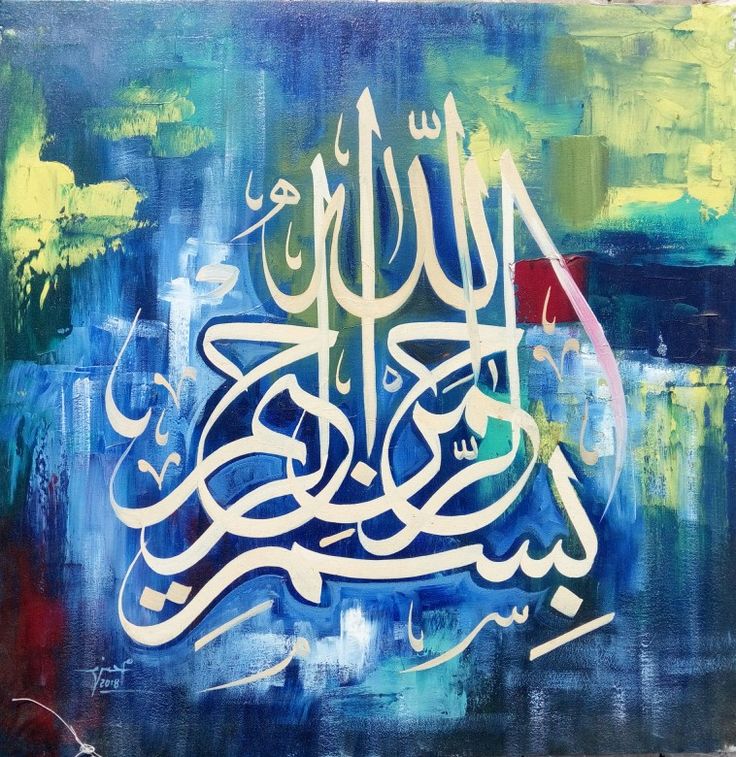 بِسمِ اللّه الرَّحمَن الرحيم
2018